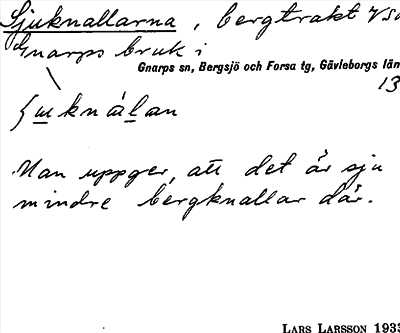 Sjuknallarna, bergtrakt V so
Gnarps bruk i
Gnarps sn, Bergsjö och Forsa tg, Gävleborgs län
13
Man uppger, att det är sju
mindre bergknallar där.
LARS LARSSON 1933